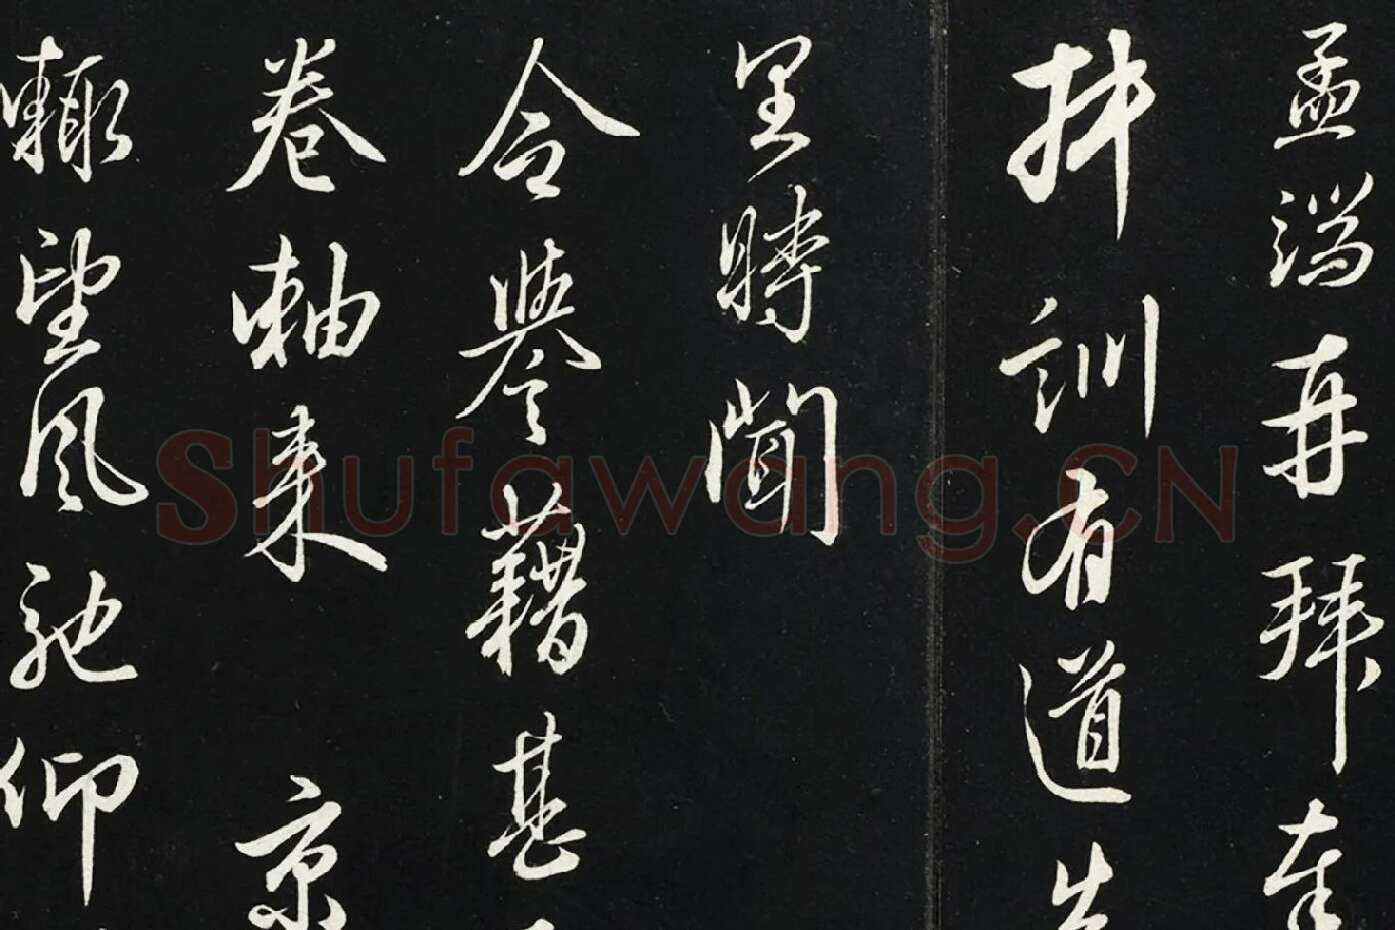 孟端再拜奉
卌訓有道先
里時聞
令譽藉甚
卷軸来 京
輙望風馳仰
Shufawang.CN